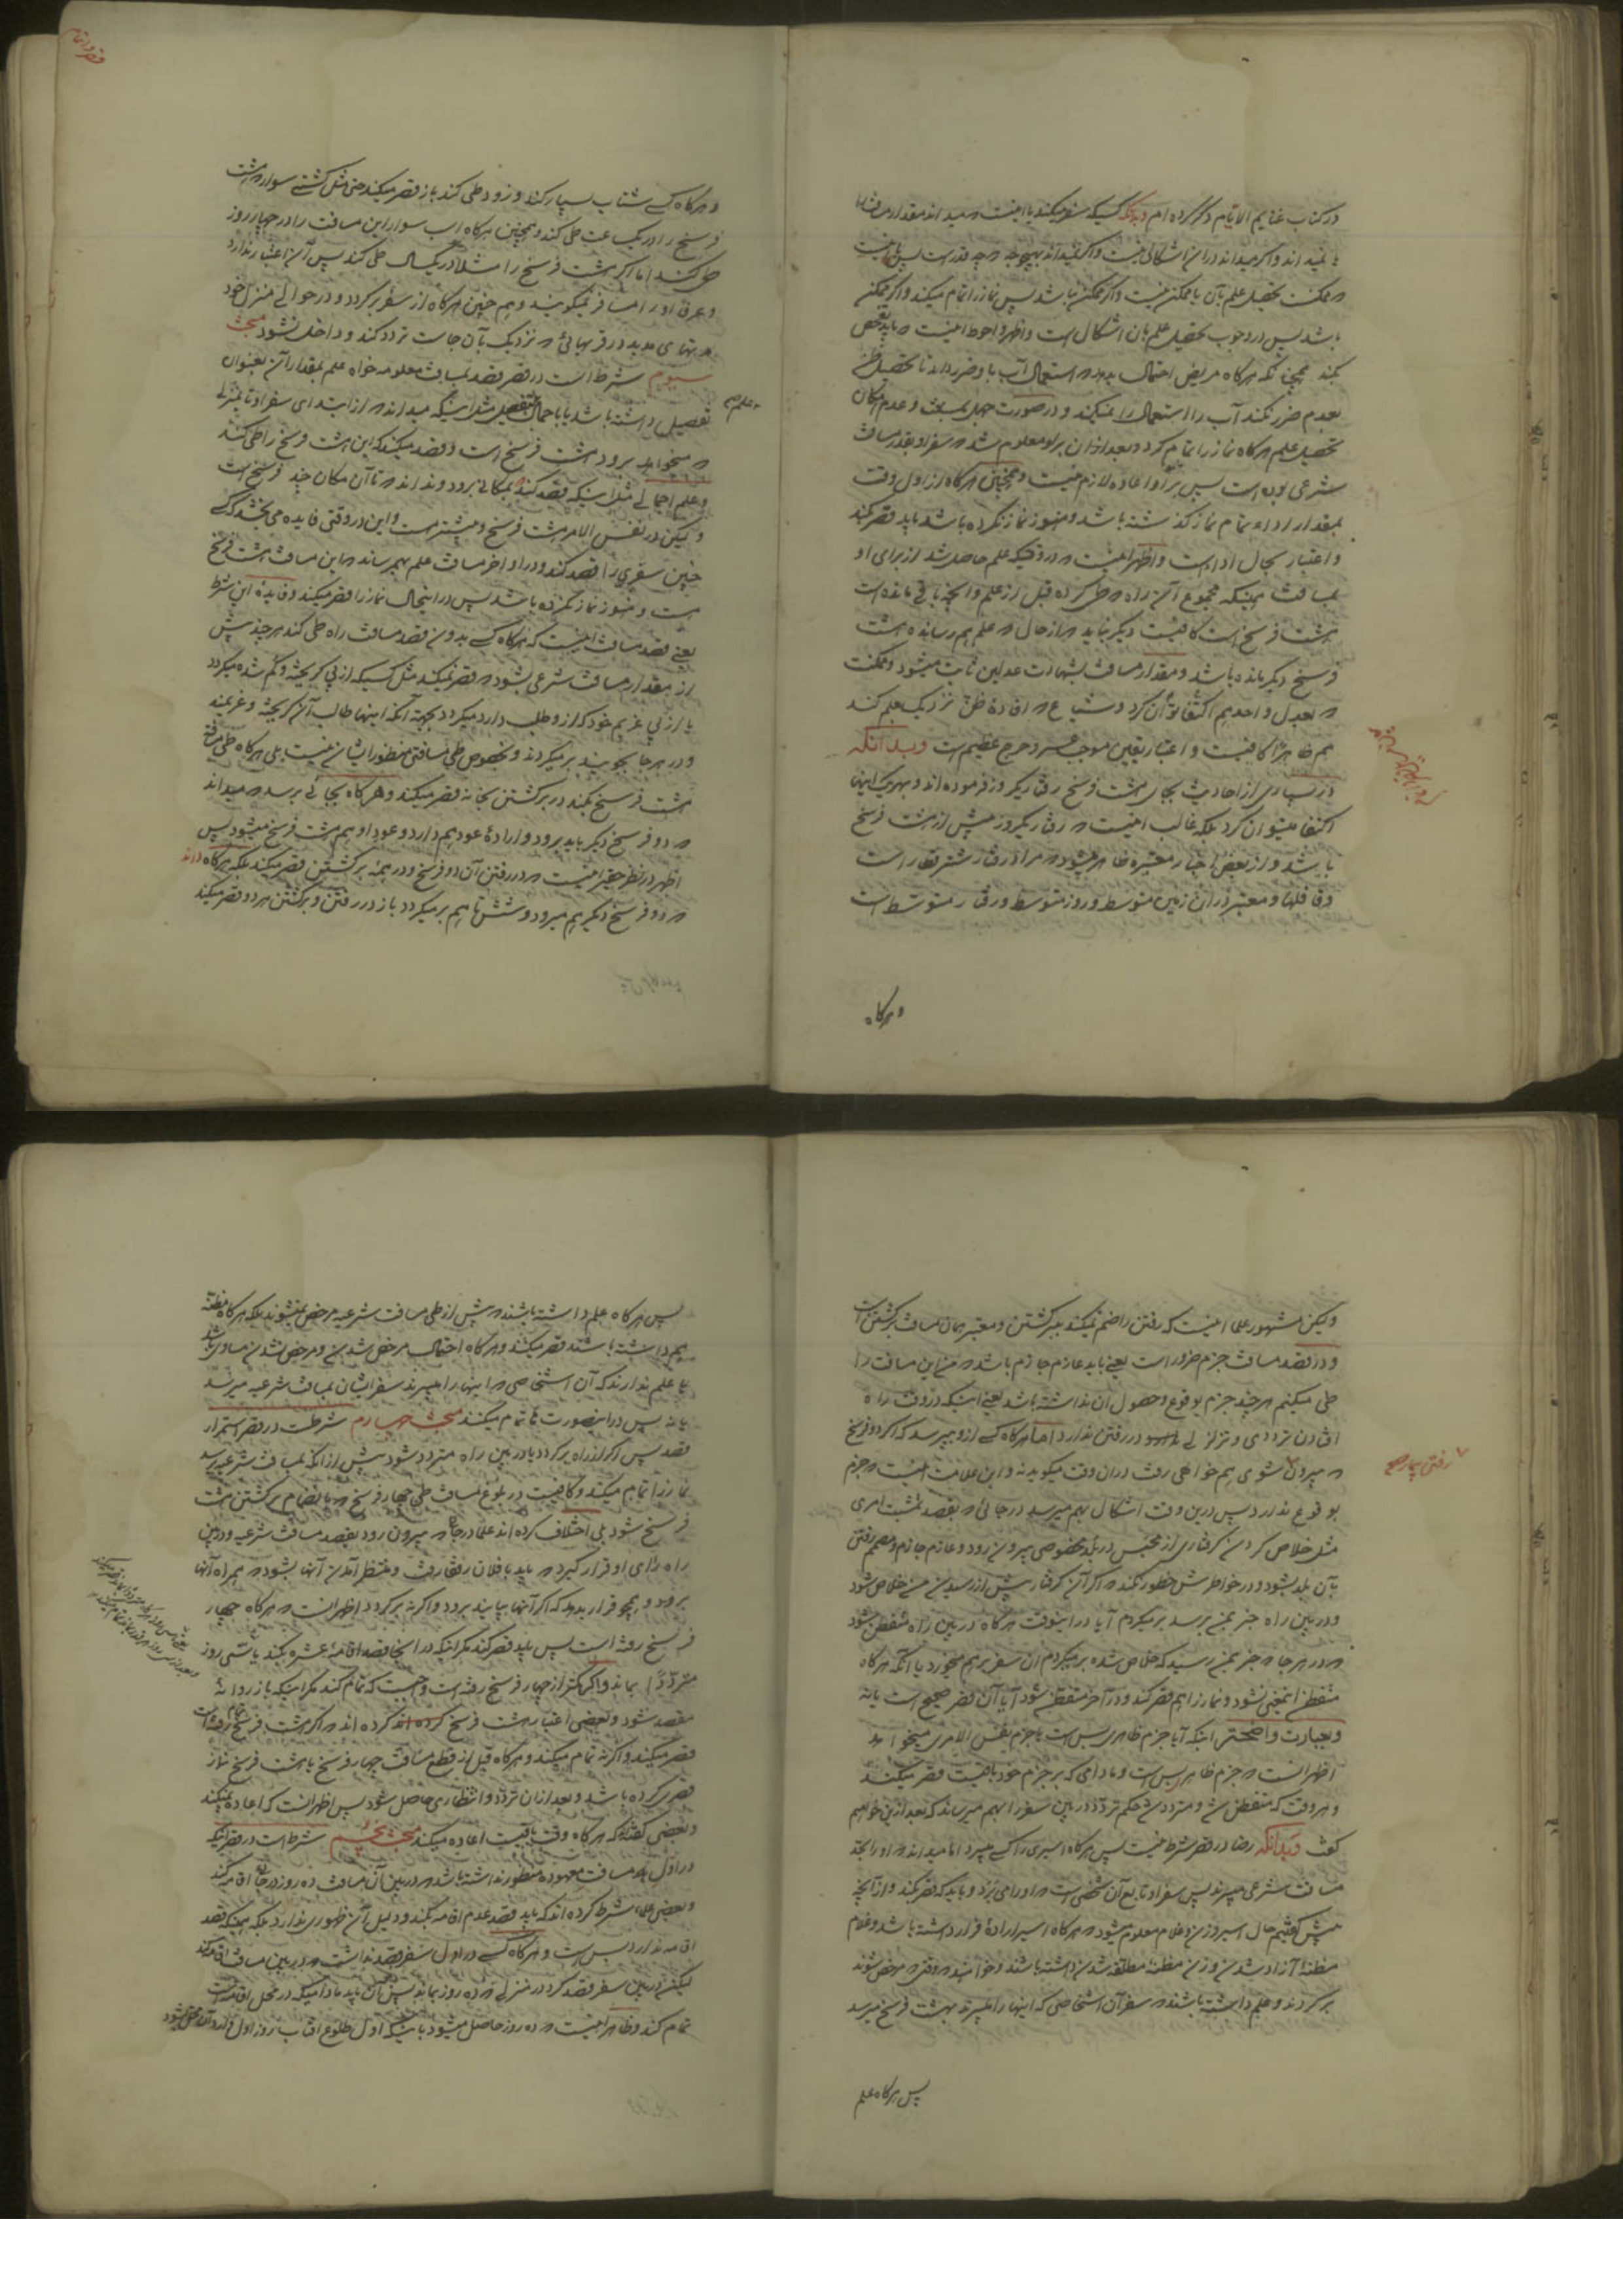 در کتاب غنایم الایام ذکر کرده ام و بدانکه کسیکه سفر میکند یا اینست میداند مقدار مسافت را
یا نمیداند و اگر میداند در آن اشکالی نیست و اگر نمیداند بهیچوجه که چه قدر است پس یا اینست
که ممکنست تحصیل علم بآن یا ممکن نیست و اگر ممکن نباشد پس نماز را تمام میکند و اگر ممکن
باشد پس در وجوب تحصیل علم بآن اشکال است و اظهر و احوط اینست که باید تفحص
بکند همچنانکه هرگاه مریض احتمال بدهد که استعمال آب باو ضرر دارد تا تحصیل ظن
بعدم ضرر نکند آب را استعمال نمیکند و در صورت جهل بمسافت و عدم امکان
تحصیل علم هرگاه نماز را تمام کرد و بعد از آن براو معلوم شد که سفر او بقدر مسافت
شرعی بوده است پس بر او اعاده لازم نیست و همچنین هرگاه از اول وقت
بمقدار اداء تمام نماز گذشته باشد و هنوز نماز نکرده باشد باید قصر کند
و اعتبار بحال اداست و اظهر اینست که در وقتیکه علم حاصل شد از برای او
بمسافت همینکه مجموع آن راه که طی کرده قبل از علم و آنچه باقی مانده است
هشت فرسخ است کافیست دیگر نباید که از حال که علم بهم رسانده هشت
فرسخ دیگر مانده باشد و مقدار مسافت بشهادت عدلین ثابت میشود و ممکنست
که بعدل واحد هم اکتفا توان کرد و شیاع که افاده ظن نزدیک بعلم کند
هم ظاهرا کافیست و اعتبار یقین موجب عسر و حرج عظیم است و بدانکه
در بسیاری از احادیث بجای هشت فرسخ رفتار یکروز فرموده اند و بهر یک اینها
اکتفا میتوان کرد بلکه غالب اینست که رفتار یکروز بیش از هشت فرسخ
باشد و از بعض اخبار معتبره ظاهر میشود که مراد رفتار شتر قطار است
و قافلها و معتبر در آن زمین متوسط و روز متوسط و رفتار متوسط است
وهرگاه
قصر و اتمام
و هرگاه کسی شتاب بسیار کند و زود طی کند باز قصر میکند حتی مثل کشتی سوار که هشت
فرسخ را در یک ساعت طی کند و همچنین هرگاه اسب سوار این مسافت را در چهار روز
طی کند اما اگر هشت فرسخ را مثلا در یکسال طی کند پس آن اعتبار ندارد
و عرفا او را مسافر نمیگویند و هم چنین هرگاه از سفر برگردد و در حوالی منزل خود
مدتهای مدید در قریهائی که نزدیک بآن جاست تردد کند و داخل نشود مبحث
سیوم شرط است در قصر قصد بمسافت معلومه خواه علم بمقدار آن بعنوان
تفصیل داشته باشد یا باجمال تفصیل مثل اینکه میداند که از ابتدای سفر او تا منزلی
که میخواهد برود هشت فرسخ است و قصد میکند که این هشت فرسخ را طی کند
و علم اجمالی مثل اینکه قصد کند بمکانی برود و نداند که تا آن مکان چند فرسخ است
و لیکن در نفس الامر هشت فرسخ و بیشتر است و این در وقتی فایده می بخشد که کسی
چنین سفری را قصد کند و در اواخر مسافت علم بهم رساند که این مسافت هشت فرسخ
است و هنوز نماز نکرده باشد پس در اینحال نماز را قصر میکند و فایده این شرط
یعنی قصد مسافت اینست که هرگاه کسی بدون قصد مسافت راه طی کند هر چند بیش
از مقدار مسافت شرعی بشود که قصر نمیکند مثل کسیکه از پی گریخته و گم شده میگردد
یا از پی غریم خود که از او طلب دارد میگردد بجهة آنکه اینها طالب آن گریخته و غریمند
و در هر جا بجویند برمیگردند و بخصوص طی مسافتی منظور ایشان نیست بلی هرگاه طی مسافة
هشت فرسخ بکند در برگشتن بخانه قصر میکند و هرگاه بجائی برسد که میداند
که دو فرسخ دیگر باید برود و اراده عود هم دارد و عود او هم هشت فرسخ میشود پس
اظهر در نظر حقیر اینست که در رفتن آن دو فرسخ و در همه برگشتن قصر میکند بلکه هرگاه داند
که دو فرسخ دیگر هم میرود و شش تا هم برمیگردد باز در رفتن و برگشتن هر دو قصر میکند
ولیکن مشهور علما اینست که رفتن را ضم نمیکنند ببرگشتن و معتبر همان مسافت برگشتن است
و در قصد مسافت جزم ضرور است یعنی باید عازم جازم باشد که من این مسافت را
طی میکنم هر چند جزم بوقوع و حصول آن نداشته باشد یعنی اینکه در وقت راه
افتادن ترددی و تزلزلی در رفتن ندارد اما هرگاه کسی از او بپرسد که اگر دو فرسخ
که بیرون شوی هم خواهی رفت در آن وقت میگوید نه و این علامت اینست که جزم
بوقوع ندارد پس درین وقت اشکال بهم میرسد در جائی که بقصد تمشیت امری
مثل خلاص کردن گرفتاری از محبس در بلد مخصوصی بیرون رود و عازم جازم و مصمم رفتن
بآن بلد بشود و در خواطرش خطور نکند که اگر آن گرفتار پیش از رسیدن من خلاص شود
و در بین راه خبر بمن برسد برمیگردم آیا در اینوقت هرگاه در بین راه متفطن شود
که در هر جا که خبر بمن رسید که خلاص شده برمیگردم آن سفر بر هم میخورد یا آنکه هرگاه
متفطن اینمعنی نشود و نماز را هم قصر کند و در آخر متفطن شود آیا آن قصر صحیح است یا نه
و بعبارت واضحتر اینکه آیا جزم ظاهری بس است یا جزم بنفس الامری میخواهد
اظهر آنست که جزم ظاهر بس است و مادامی که بر جزم خود باقیست قصر میکند
و هر وقت که متفطن شد و متردد شد حکم تردد در بین سفر را بهم میرساند که بعد ازین خواهیم
گفت و بدانکه رضا در قصر شرط نیست پس هرگاه اسیری را کسی میبرد اما میداند که او را بحد
مسافت شرعی میبرند پس سفر او تابع آن شخصی است که او را می برد و باید که قصر کند و از آنچه
پیش گفتیم حال اسیر و زن و غلام معلوم میشود که هرگاه اسیر اراده فرار داشته باشد و غلام
مظنه آزاد شدن و زن مظنه مطلقه شدن داشته باشند و خواهند که وقتی که مرخص شوند
برگردند و علم داشته باشند که سفر آن اشخاصی که اینها را میبرند بهشت فرسخ میرسد
رفتن بیمار صح
پس هرگاه علم
پس هرگاه علم داشته باشند که پیش از طی مسافت شرعیه مرخص نمیشوند بلکه هرگاه مظنه
هم داشته باشند قصر میکنند و هرگاه احتمال مرخص شدن و مرخص نشدن مساوی باشد
یا علم ندارند که آن اشخاصی که اینها را میبرند سفر ایشان بمسافت شرعیه میرسد
یا نه پس در اینصورت ها تمام میکنند مبحث چهارم شرطست در قصر استمرار
قصد پس اگر از راه برگردد یا در بین راه متردد شود پیش از آنکه بمسافت شرعیه برسد
نماز را تمام میکند و کافیست در بلوغ مسافت طی چهار فرسخ که بانضمام برگشتن هشت
فرسخ شود بلی اختلاف کرده اند علما در جائی که بیرون رود بقصد مسافت شرعیه و در بین
راه رای او قرار گیرد که باید با فلان رفقا رفت و منتظر آمدن آنها بشود که همراه آنها
برود و بخود قرار بدهد که اگر آنها بیایند برود و اگر نه برگردد اظهر آنست که هرگاه چهار
فرسخ رفته است پس باید قصر کند مگر اینکه در آنجا قصد اقامه عشره بکند یا سی روز
مترددا بماند و اگر کمتر از چهار فرسخ رفته است واجبست که تمام کند مگر اینکه باز روانه
مقصد شود و بعضی اعتبار هشت فرسخ کرده اند کرده اند که اگر هشت فرسخ تمام رفته است
قصر میکند و اگر نه تمام میکند و هرگاه قبل از قطع مسافت چهار فرسخ یا هشت فرسخ نماز
قصری کرده باشد و بعد از آن تردد و انتظاری حاصل شود پس اظهر آنست که اعاده نمیکند
و بعضی گفته اند که هرگاه وقت باقیست اعاده میکند مبحث پنجم شرط است در قصر اینکه
در اول مسافت معهوده منظور نداشته باشد که در بین آن مسافت ده روز در جائی اقامه کند
و بعضی علما شرط کرده اند که باید قصد عدم اقامه بکند و دلیل آن ظهوری ندارد بلکه همینکه قصد
اقامه ندارد بس است و هرگاه کسی در اول سفر قصد نداشت که در بین مسافت اقامه کند
لیکن در بین سفر قصد کرد در منزلی که ده روز بماند پس آن باید مادامیکه در محل اقامه است
تمام کند و ظاهر اینست که ده روز حاصل میشود باینکه اول طلوع آفتاب روز اول وارد آن محل شود